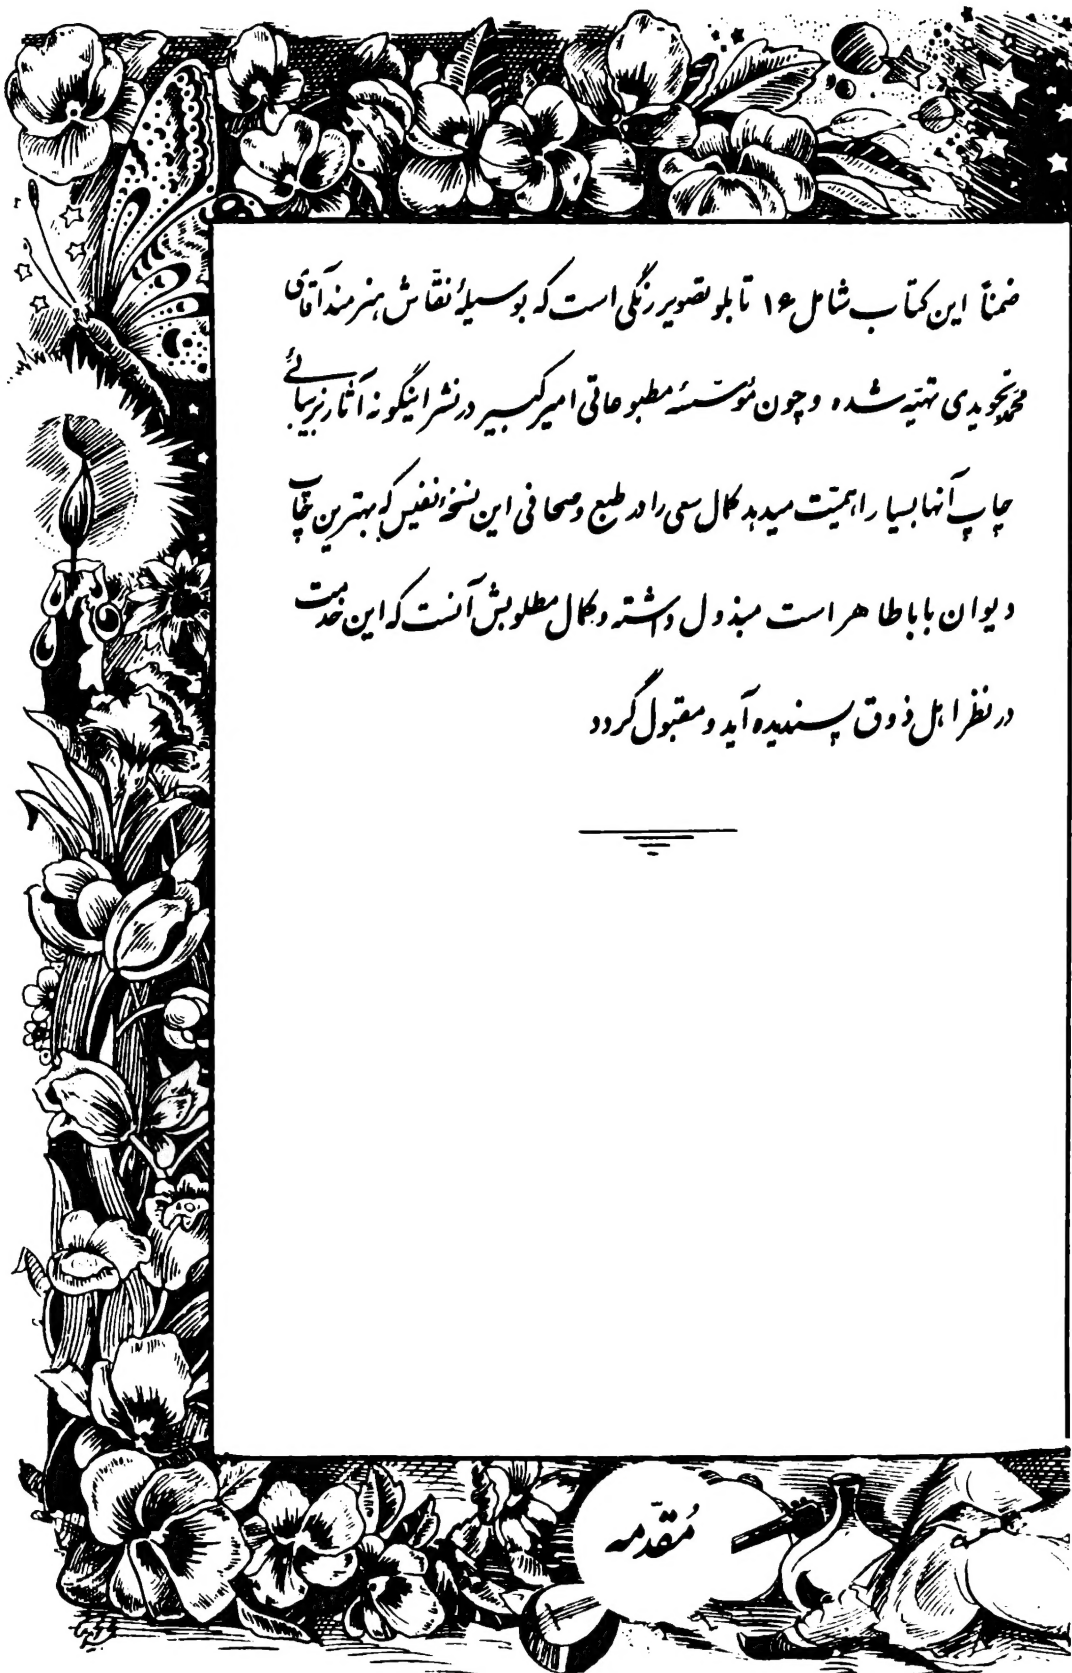 ضمناً این کتاب شامل ۱۶ تابلو تصویر رنگی است که بوسیلهٔ نقّاش هنرمند آقای
محمد تجویدی تهیّه شده و چون مؤسّسهٔ مطبوعاتی امیرکبیر در نشر اینگونه آثار زیبائی
چاپ آنها بسیار اهمیّت میدهد کمال سعی را در طبع و صحافی این نسخهٔ نفیس که بهترین چاپ
دیوان باباطاهر است مبذول داشته و کمال مطلوبش آنست که این خدمت
در نظر اهل ذوق پسندیده آید و مقبول گردد
مُقدّمه